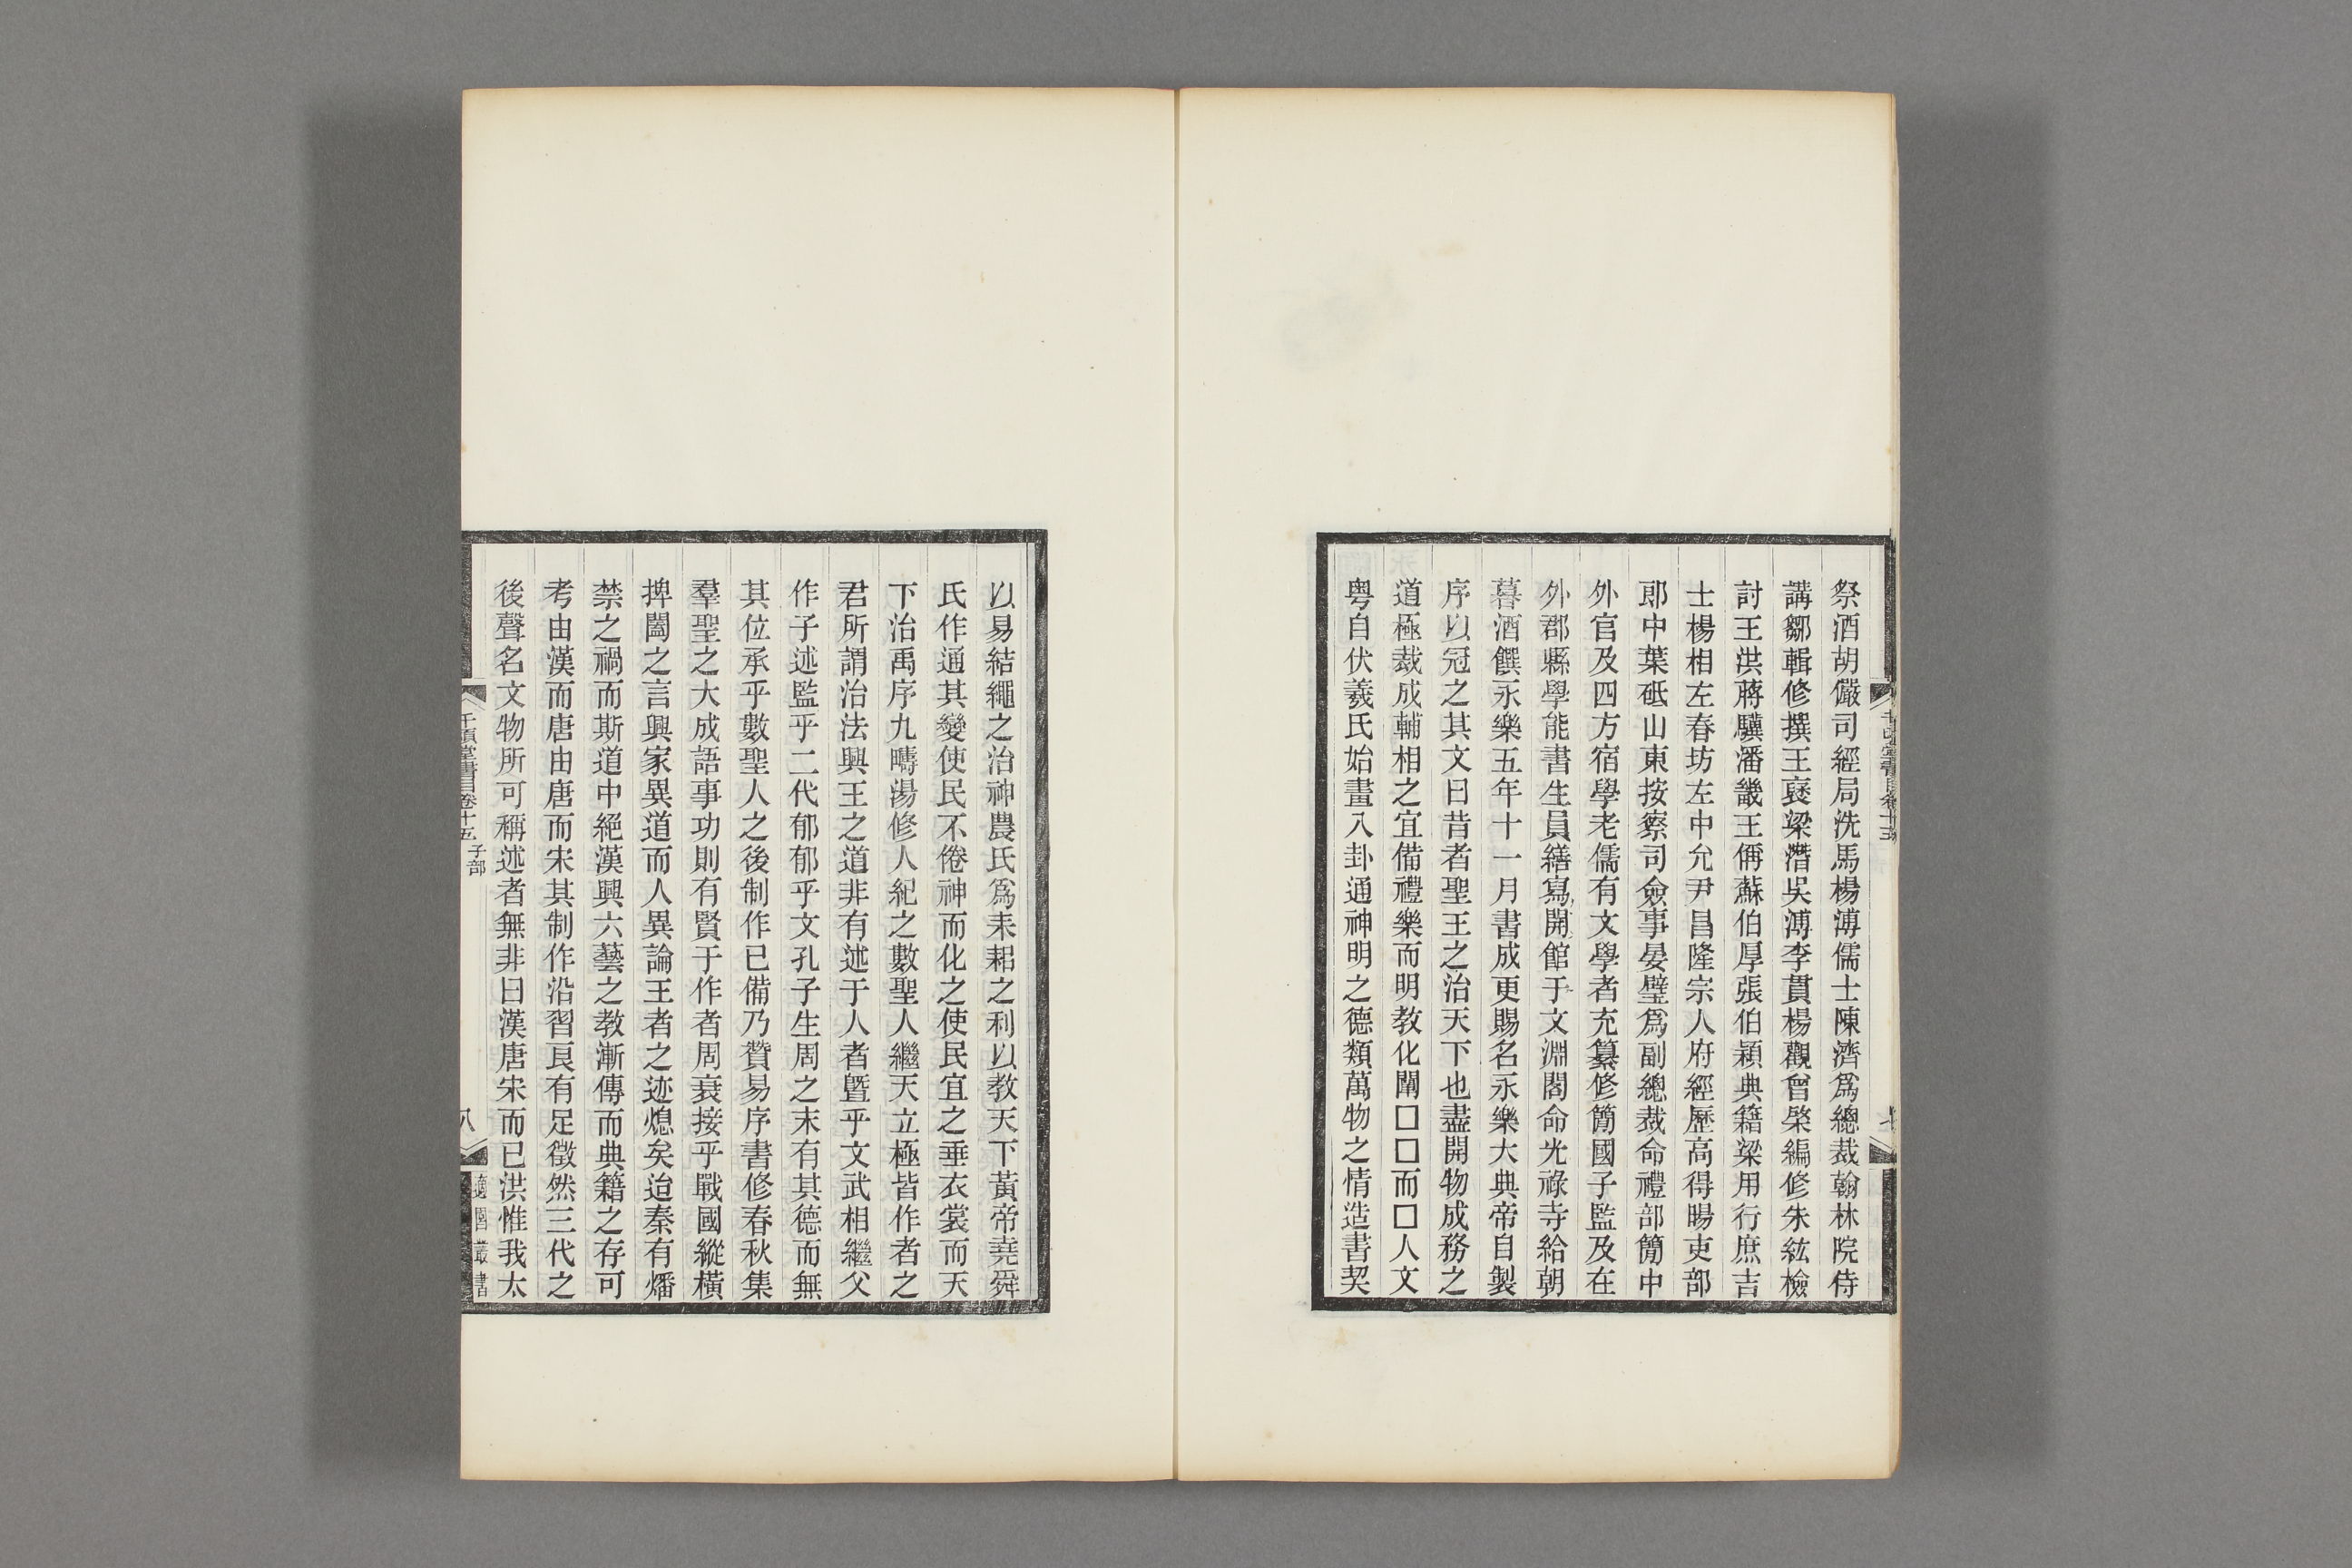 祭酒胡儼司經局洗馬楊溥儒士陳濟爲總裁翰林院侍
講鄒輯修撰王褒梁潛吳溥李貫楊觀曾棨編修朱紘檢
討王洪蔣驥潘畿王偁蘇伯厚張伯穎典籍梁用行庶吉
士楊相左春坊左中允尹昌隆宗人府經歷高得暘吏部
郎中葉砥山東按察司僉事晏璧爲副總裁命禮部簡中
外官及四方宿學老儒有文學者充纂修簡國子監及在
外郡縣學能書生員繕寫開館于文淵閣命光祿寺給朝
暮酒饌永樂五年十一月書成更賜名永樂大典帝自製
序以冠之其文曰昔者聖王之治天下也盡開物成務之
道極裁成輔相之宜備禮樂而明教化闡□□而□人文
粤自伏羲氏始畫八卦通神明之德類萬物之情造書契
以易結繩之治神農氏爲耒耜之利以教天下黃帝堯舜
氏作通其變使民不倦神而化之使民宜之垂衣裳而天
下治禹序九疇湯修人紀之數聖人繼天立極皆作者之
君所謂治法興王之道非有述于人者暨乎文武相繼父
作子述監乎二代郁郁乎文孔子生周之末有其德而無
其位承乎數聖人之後制作已備乃贊易序書修春秋集
羣聖之大成語事功則有賢于作者周衰接乎戰國縱橫
捭闔之言興家異道而人異論王者之迹熄矣迨秦有燔
禁之禍而斯道中絕漢興六藝之教漸傳而典籍之存可
考由漢而唐由唐而宋其制作沿習良有足徵然三代之
後聲名文物所可稱述者無非曰漢唐宋而已洪惟我太
千頃堂書目卷十五 子部
八
適園叢書